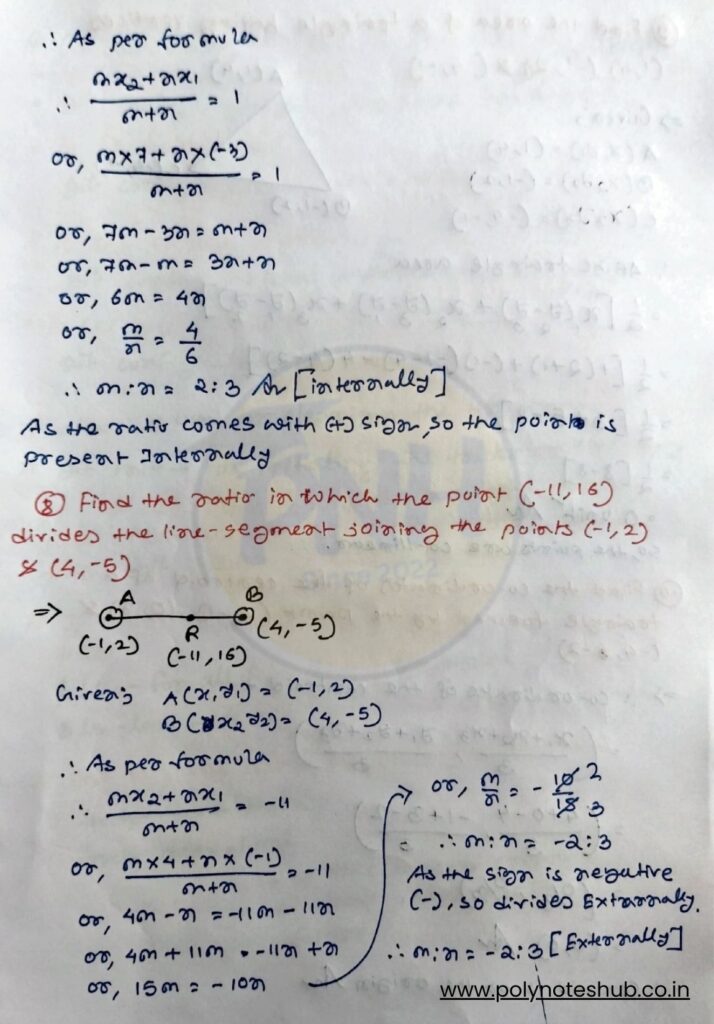 ∴ As per formula
∴ (mx₂+nx₁)/(m+n) = 1
or, (m×7+n×(-3))/(m+n) = 1
or, 7m-3n = m+n
or, 7m-m = 3n+n
or, 6m = 4n
or, m/n = 4/6
∴ m:n = 2:3 An [internally]
As the ratio comes with (+) sign, so the point is
present Internally
⑧ Find the ratio in which the point (-11,16)
divides the line-segment joining the points (-1,2)
& (4,-5)
⇒ A B
(-1,2) R (4,-5)
(-11,16)
Given; A(x,y₁) = (-1,2)
B(x₂y₂) = (4,-5)
∴ As per formula
∴ (mx₂+nx₁)/(m+n) = -11
or, (m×4+n×(-1))/(m+n) = -11
or, 4m-n = -11m-11n
or, 4m+11m = -11n+n
or, 15m = -10n
or, m/n = -10/18 2 3
∴ m:n = -2:3
As the sign is negative
(-), so divides Extarnally.
∴ m:n = -2:3 [Externally]
PNH
since 2022
www.polynoteshub.co.in